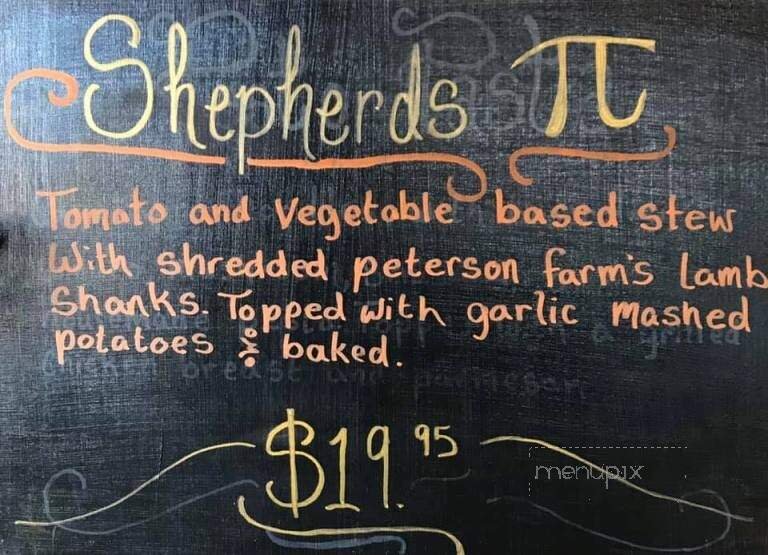 Shepherds π
Tomato and vegetable based stew
With shredded peterson farm's Lamb
Shanks. Topped with garlic mashed
potatoes & baked.
grilled
chicken breast and parmesan
$19.95
menupix